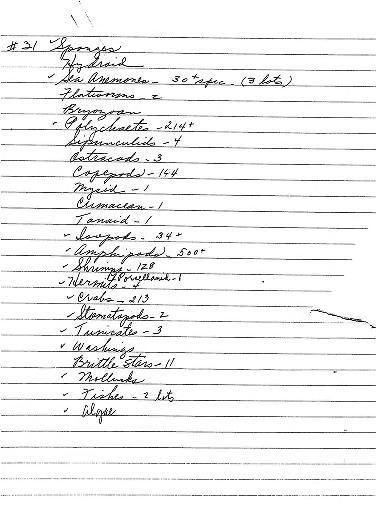 #31 ✓ Sponges
Hydroid
✓ Sea Anemones - 30+ spec. (3 lots)
Flatworms - 2
Bryozoan
✓ Polychaetes - 214+
Sipunculids - 4
Ostracods - 3
Copepods - 144
Mysid - 1
Cumacean - 1
Tanaid - 1
✓ Isopods - 34+
✓ Amphipods - 500+
✓ Shrimps - 128
✓ Hermits - 4
✓ Crabs - 213
✓ Stomatopods - 2
✓ Tunicates - 3
✓ Washings
Brittle stars - 11
✓ Mollusks
✓ Fishes - 2 lots
✓ Algae